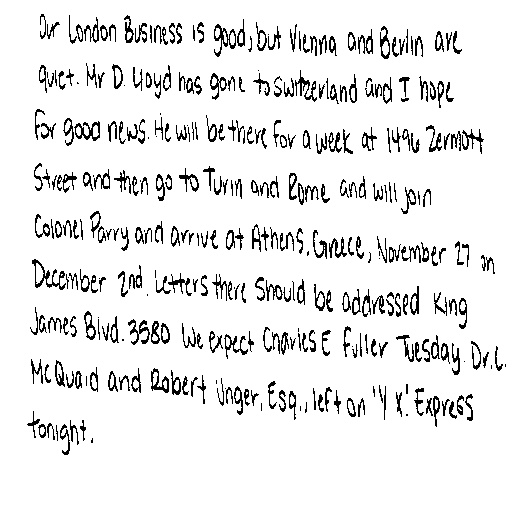 Our London Business is good, but Vienna and Berlin are
quiet. Mr D. Lloyd has gone to Switzerland and I hope
for good news. He will be there for a week at 1496 Zermott
Street and then go to Turin and Rome and will join
Colonel Parry and arrive at Athens, Greece, November 27 or
December 2nd. Letters there should be addressed King
James Blvd. 3580 We expect Charles E Fuller Tuesday. Dr. L.
McQuaid and Robert Unger, Esq., left on 'Y X.' Express
tonight.